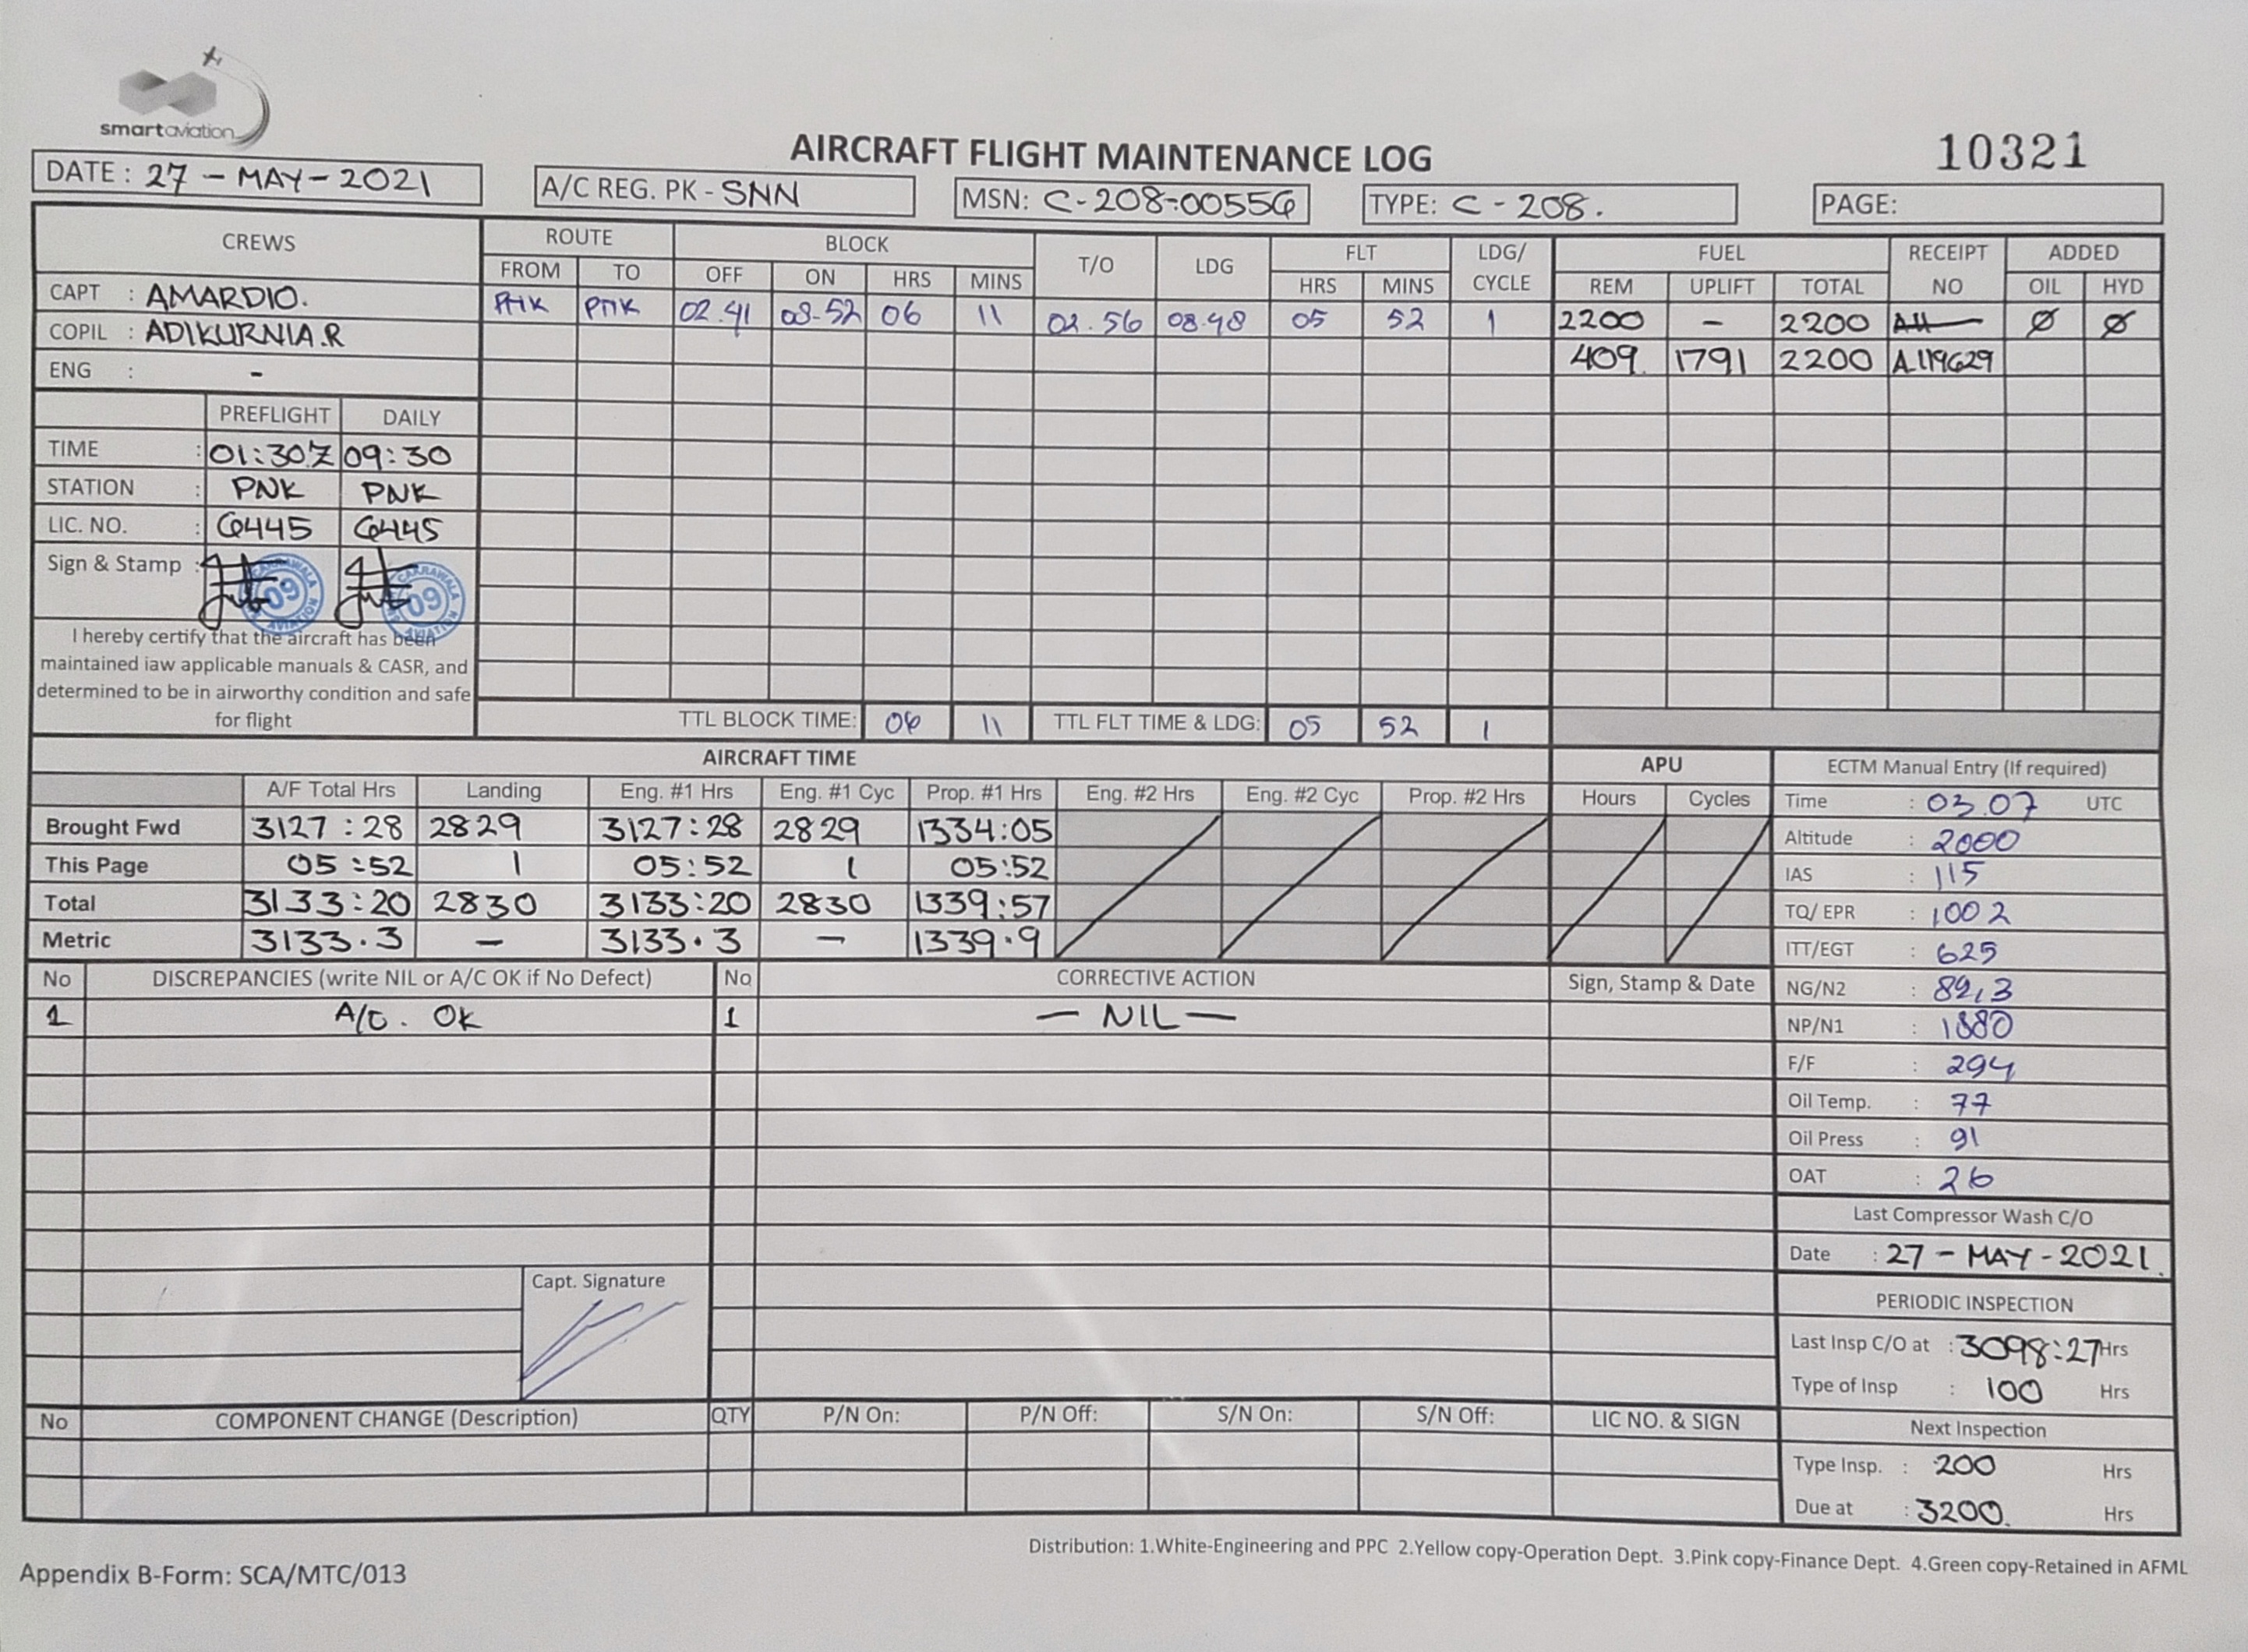 smartaviation
AIRCRAFT FLIGHT MAINTENANCE LOG
10321
DATE : 27 - MAY - 2021
A/C REG. PK - SNN
MSN: C-208-00556
TYPE: C - 208.
PAGE:
CREWS
ROUTE BLOCK T/O LDG FLT LDG/ CYCLE FUEL RECEIPT NO ADDED
FROM TO OFF ON HRS MINS HRS MINS REM UPLIFT TOTAL OIL HYD
CAPT : AMARDIO.
COPIL : ADIKURNIA.R
ENG : -
PNK PNK 02.41 08-52 06 11 02.56 08.48 05 52 1 2200 - 2200 Ø Ø
409. 1791 2200 A.119629
PREFLIGHT DAILY
TIME : 01:30Z 09:30
STATION : PNK PNK
LIC. NO. : 6445 6445
Sign & Stamp :
09 AVIATION
09 AVIATION
I hereby certify that the aircraft has been
maintained iaw applicable manuals & CASR, and
determined to be in airworthy condition and safe
for flight
TTL BLOCK TIME: 06 11 TTL FLT TIME & LDG: 05 52 1
AIRCRAFT TIME
A/F Total Hrs Landing Eng. #1 Hrs Eng. #1 Cyc Prop. #1 Hrs Eng. #2 Hrs Eng. #2 Cyc Prop. #2 Hrs
Brought Fwd 3127:28 2829 3127:28 2829 1334:05
This Page 05:52 1 05:52 1 05:52
Total 3133:20 2830 3133:20 2830 1339:57
Metric 3133.3 - 3133.3 - 1339.9
APU
Hours Cycles
ECTM Manual Entry (If required)
Time : 03.07 UTC
Altitude : 2000
IAS : 115
TQ/ EPR : 1002
ITT/EGT : 625
NG/N2 : 89,3
NP/N1 : 1880
F/F : 294
Oil Temp. : 77
Oil Press : 91
OAT : 26
Last Compressor Wash C/O
Date : 27 - MAY - 2021.
PERIODIC INSPECTION
Last Insp C/O at : 3098:27 Hrs
Type of Insp : 100 Hrs
Next Inspection
Type Insp. : 200 Hrs
Due at : 3200. Hrs
No DISCREPANCIES (write NIL or A/C OK if No Defect) No CORRECTIVE ACTION Sign, Stamp & Date
1 A/C. OK 1 — NIL —
Capt. Signature
No COMPONENT CHANGE (Description) QTY P/N On: P/N Off: S/N On: S/N Off: LIC NO. & SIGN
Distribution: 1.White-Engineering and PPC 2.Yellow copy-Operation Dept. 3.Pink copy-Finance Dept. 4.Green copy-Retained in AFML
Appendix B-Form: SCA/MTC/013